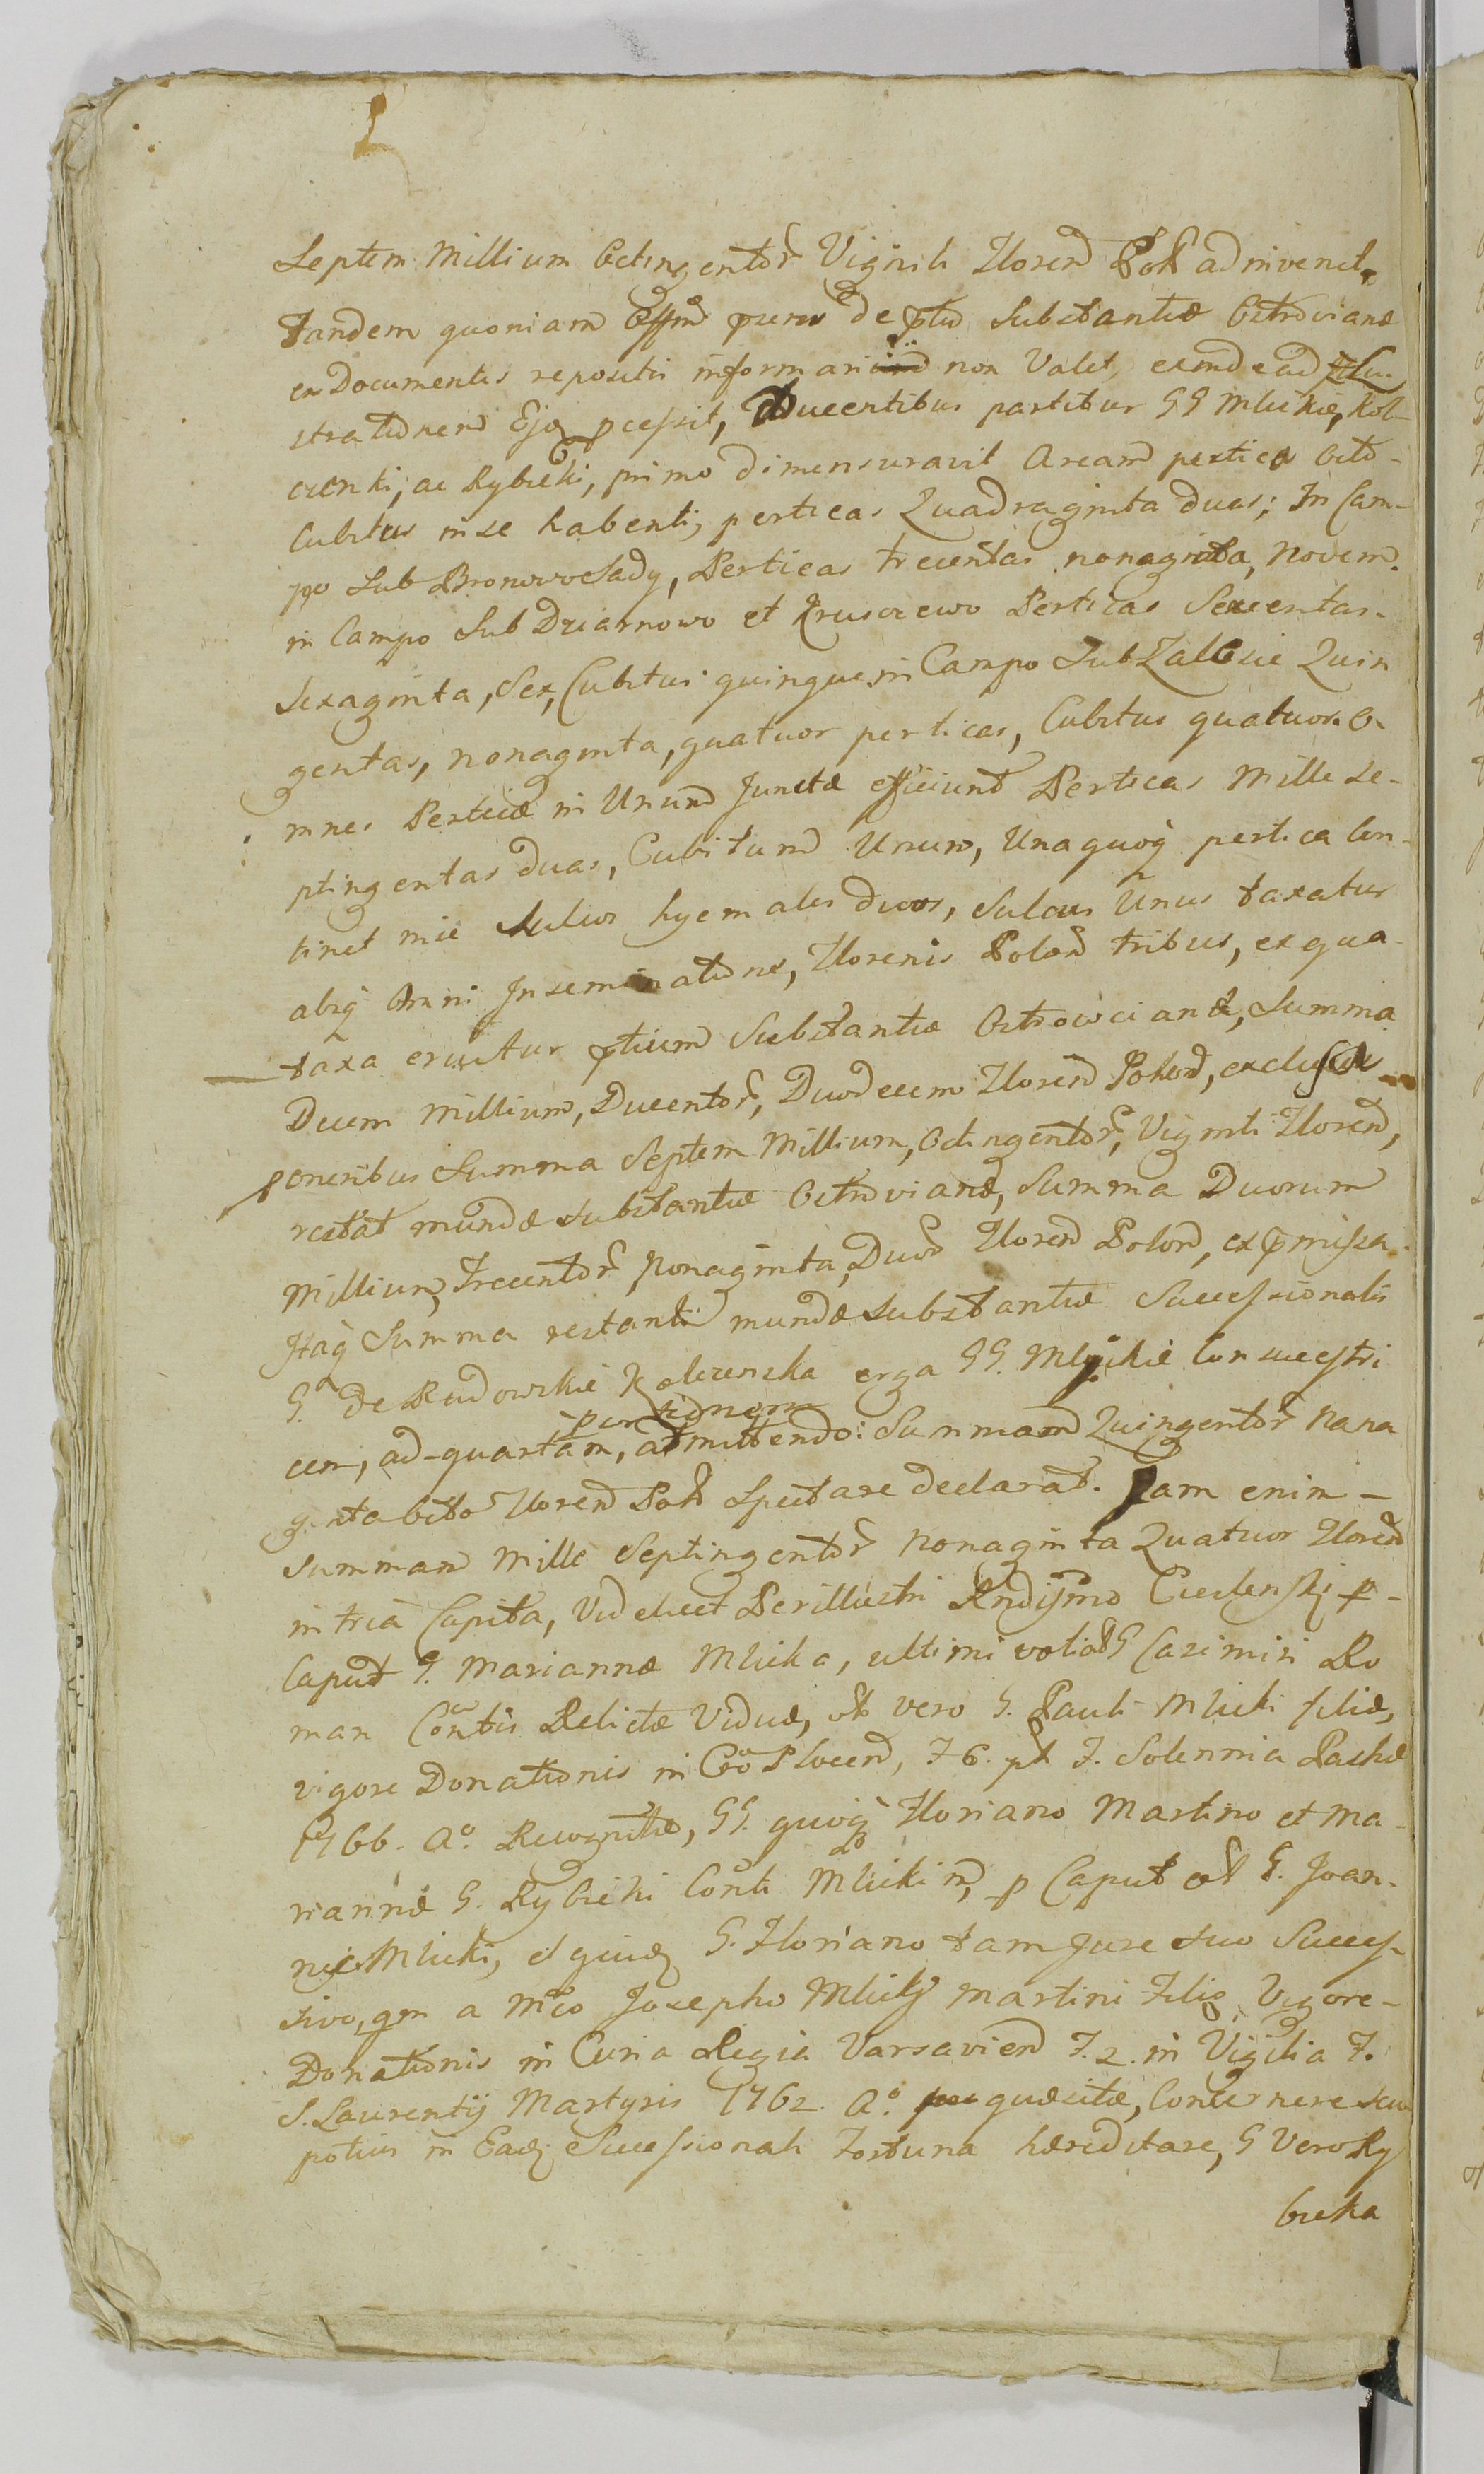 Septem Millium Octingentor Viginti Floren Pol adinvenit,
tandem quoniam Offm de ptio Substantiæ Ostroviane
ex Documentis repositis informari non Valet, eund ad Illu-
strationem Ejq pcessit, Ducentibus partibus GG Mlickie, Kol-
czenki, ac Rybicki, primo dimensuravit Aream pertica Octo-
Cubitus in se habenti, perticas Quadraginta duas; In Cam-
po Sub Bronowosady, Perticas trecentas nonaginta, Novem.
in Campo Sub Dziarnowo et Kruszewo Perticas Sexcentas-
Sexaginta, Sex, Cubitus quinque, in Campo Sub Zalesie Quin
gentas, nonaginta, quatuor perticas, Cubitus quatuor. O-
mnes Perticæ in Unum Junctæ efficiunt Perticas Mille Se-
ptingentas duas, Cubitum Unum, Una quoq pertica Con-
tinet in se Sulcos hyemales duos, Sulcus Unus taxatur
absq Omni Inseminatione, Florenis Polon tribus, ex qua-
taxa eruitur ptium Substantiæ Ostrowcianæ, Summa
Decem Millium, Ducentor, Duodecem Floren Polon, exclusa
oneribus Summa Septem Millium, Octingentor, Viginti Floren,
restat mundæ Substantiæ Ostrovianæ, Summa Duorum
Millium, Trecentor Nonaginta, Duor Floren Polon, ex pmissa.
Itaq Summa restanti mundæ Substantiæ Successionalis
G. de Rudowskie Kolczenska erga GG. Mlickie Consuccestri
portionem
cem, ad-quartam, admittendo: Summam Quingentor Nona
ginta Octo Floren Pol Spectare declarat. Jam enim-
Summam Mille Septingentor Nonaginta Quatuor Floren
in tria Capita, Videlicet Perillustri Rndissmo Cieslenski p-
Caput G. Mariannæ Mlicka, ultimi voti G Casimiri Ro
man Contis Relictæ Viduæ, vero G. Pauli Mlicki filiæ,
vigore Donationis in Plocen, F 6. F. Solennia Paschæ
1766. Ao. Recognitæ, GG. quoq Floriano Martino et Ma-
riannæ G. Rybicki Conti Mlickim, p Caput G. Joan-
nis Mlicki, et quid G. Floriano tam Jure Suo Succes-
sivo, qm a Mco Josepho Mlicki Martini Filio, Vigore-
Donationis in Curia Regia Varsavien F. 2. in Vigilia F.
S. Laurentij Martyris 1762. Ao. quæsitæ, Concernere seu
potius in Ead Successionali Fortuna hæreditare, G Vero Ry
bicka